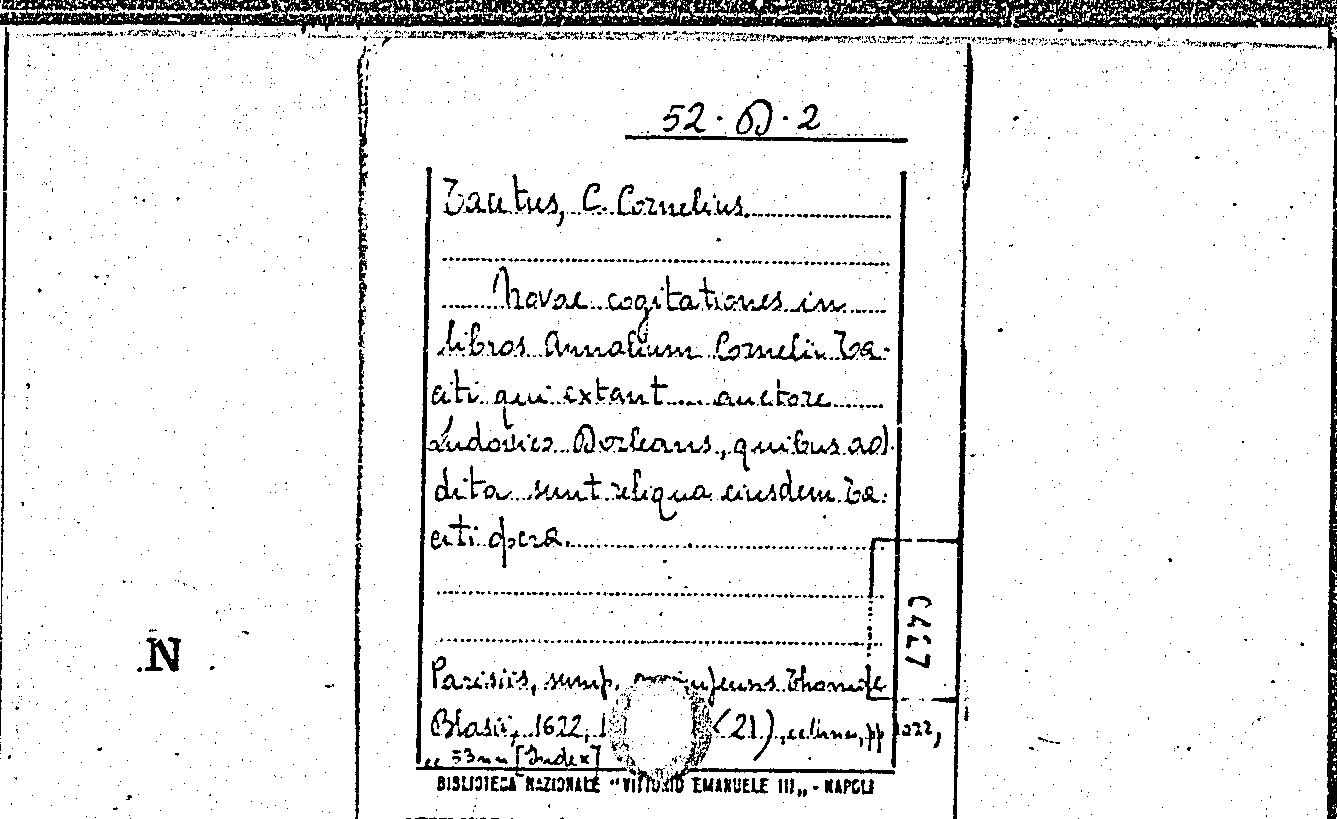 52 · D · 2
Tacitus, C. Cornelius
Novae cogitationes in
libros Annalium Cornelii Ta-
citi qui extant ... auctore
Ludovico Dorleans, quibus ad-
dita sunt reliqua eiusdem Ta-
citi opera.
Parisiis, sump. Thomae
Blasii, 1622, (21), pp 1022,
53 nn [Index]
BIBLIOTECA NAZIONALE "VITTORIO EMANUELE III„ - NAPOLI
N